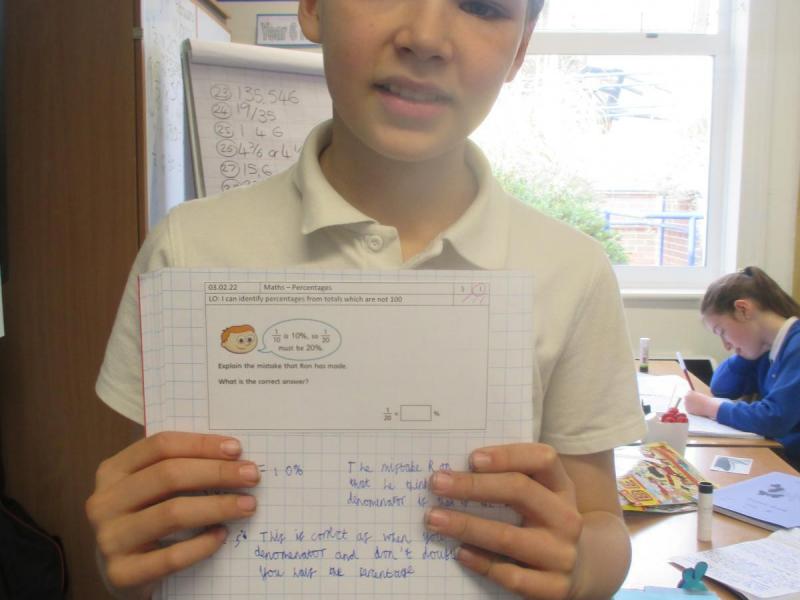 Year 6
23 135,546
24 19/35
25 1 4 6
26 4 3/6 or 4 1
27 15,6
03.02.22 Maths – Percentages
LO: I can identify percentages from totals which are not 100
1/10 is 10%, so 1/20
must be 20%.
Explain the mistake that Ron has made.
What is the correct answer?
1/20 = %
= 10% The mistake Ron
that he
denominator is
5% This is correct as when you
denominator and don't
you half the percentage